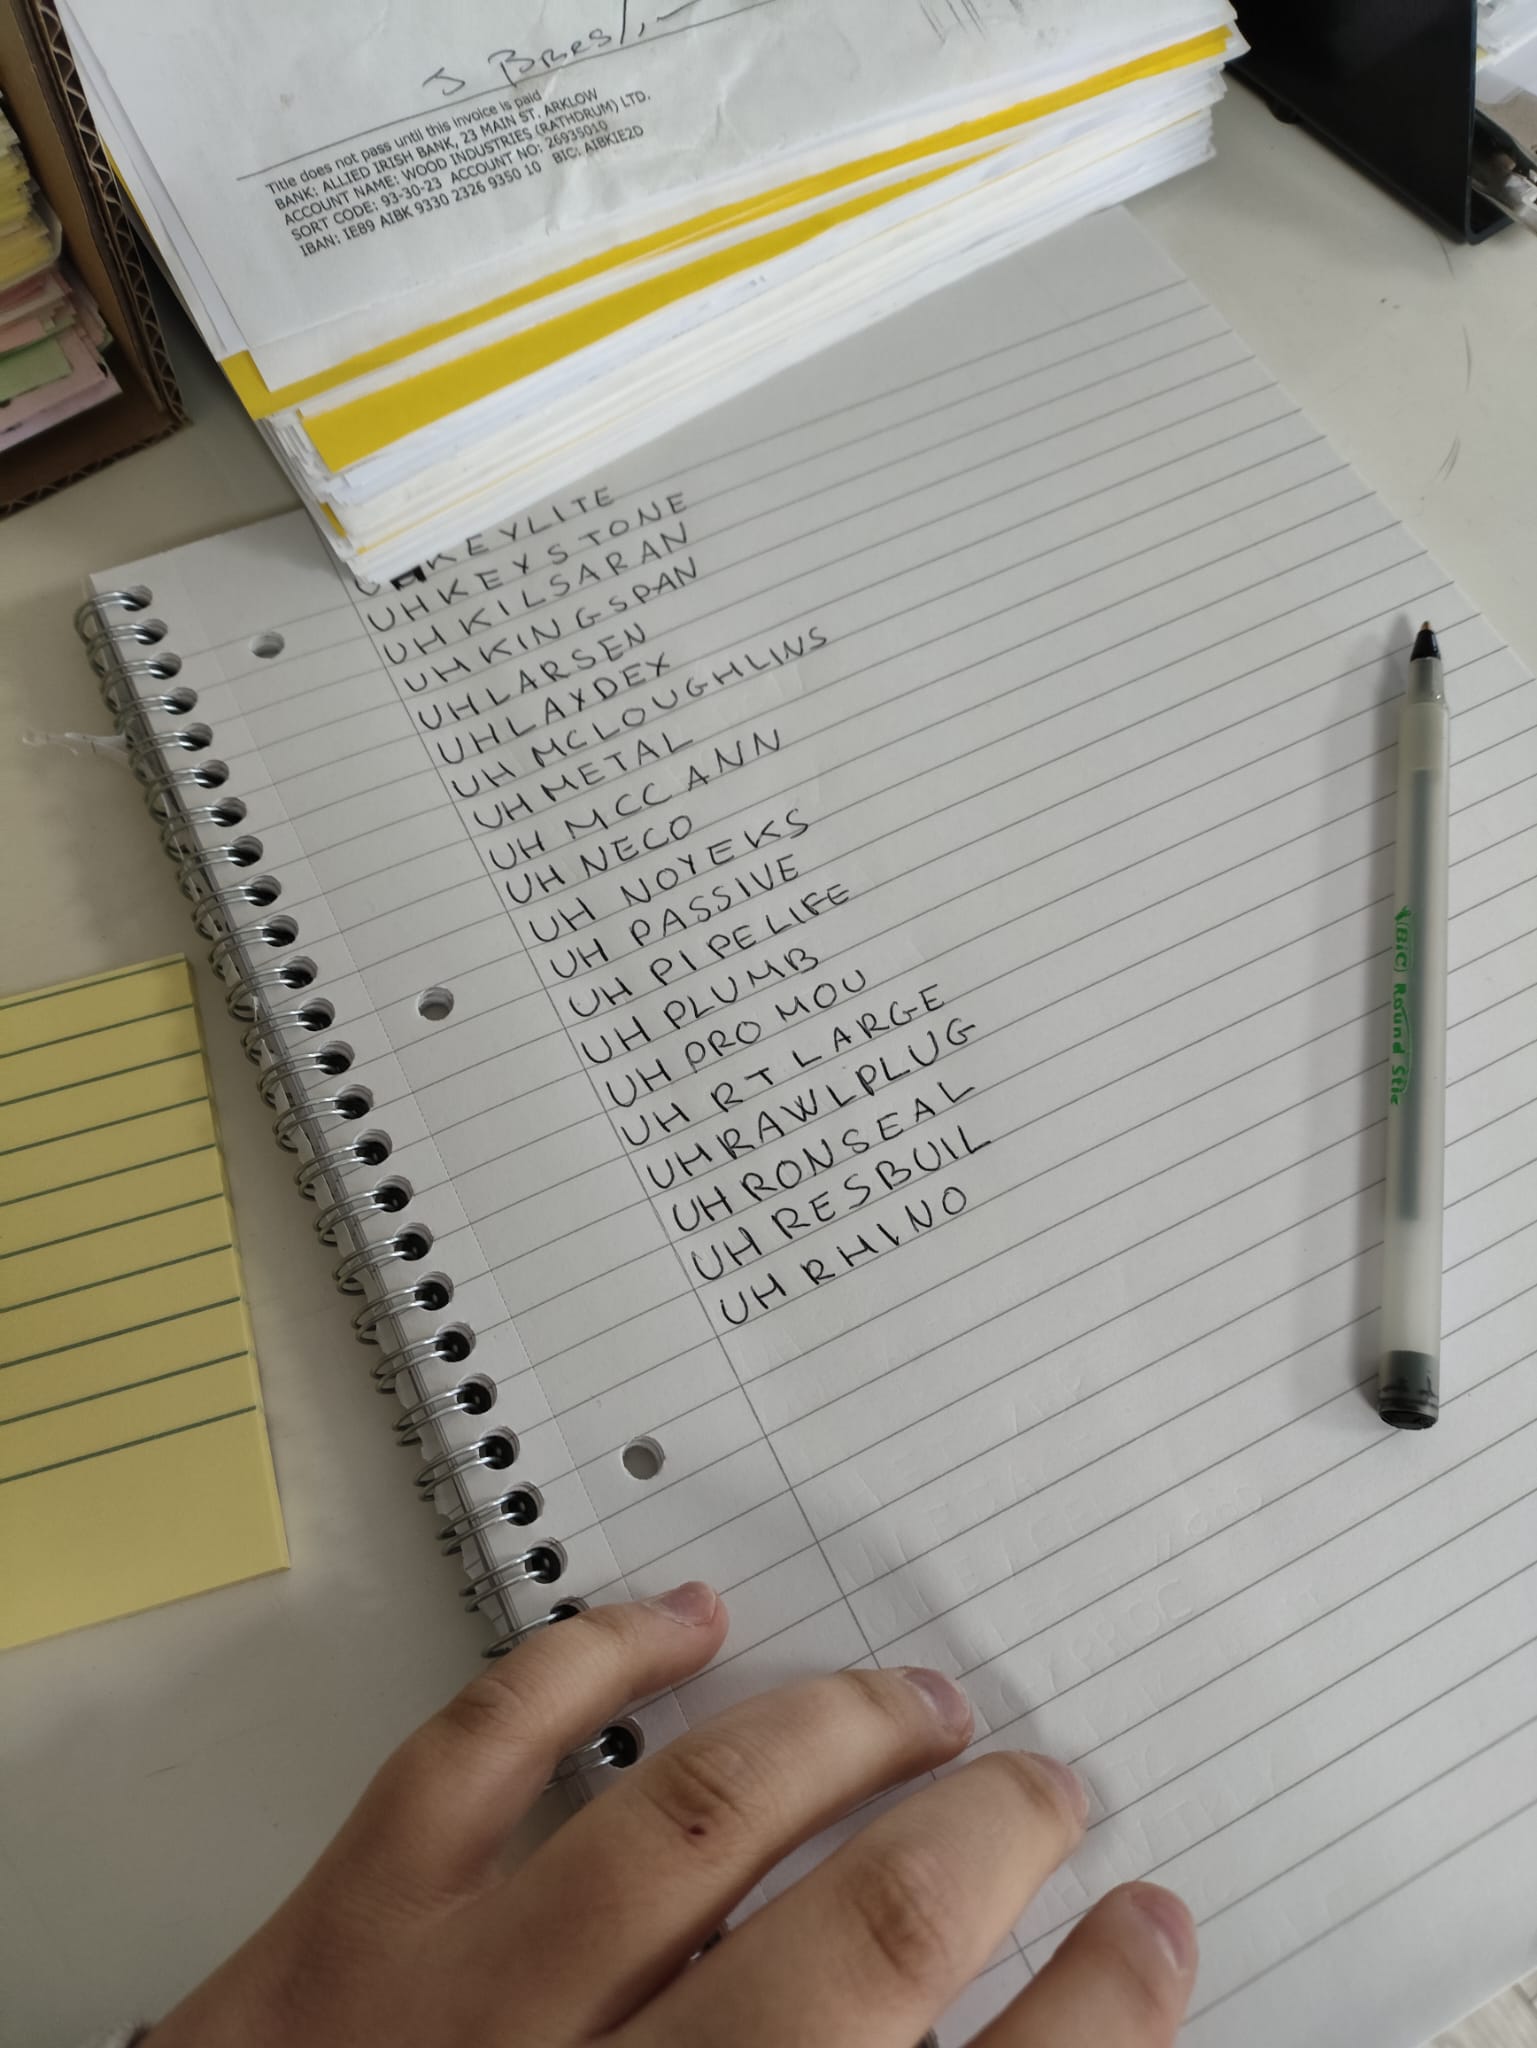 Title does not pass until this invoice is paid
BANK: ALLIED IRISH BANK, 23 MAIN ST. ARKLOW
ACCOUNT NAME: WOOD INDUSTRIES (RATHDRUM) LTD.
SORT CODE: 93-30-23 ACCOUNT NO: 26935010
IBAN: IE89 AIBK 9330 2326 9350 10 BIC: AIBKIE2D
KEYLITE
UH KEYSTONE
UH KILSARAN
UH KINGSPAN
UH LARSEN
UH LAYDEX
UH MCLOUGHLINS
UH METAL
UH MCCANN
UH NECO
UH NOYEKS
UH PASSIVE
UH PIPELIFE
UH PLUMB
UH PRO MOU
UH RT LARGE
UH RAWLPLUG
UH RONSEAL
UH RESBUIL
UH RHINO
BIC Round Stic